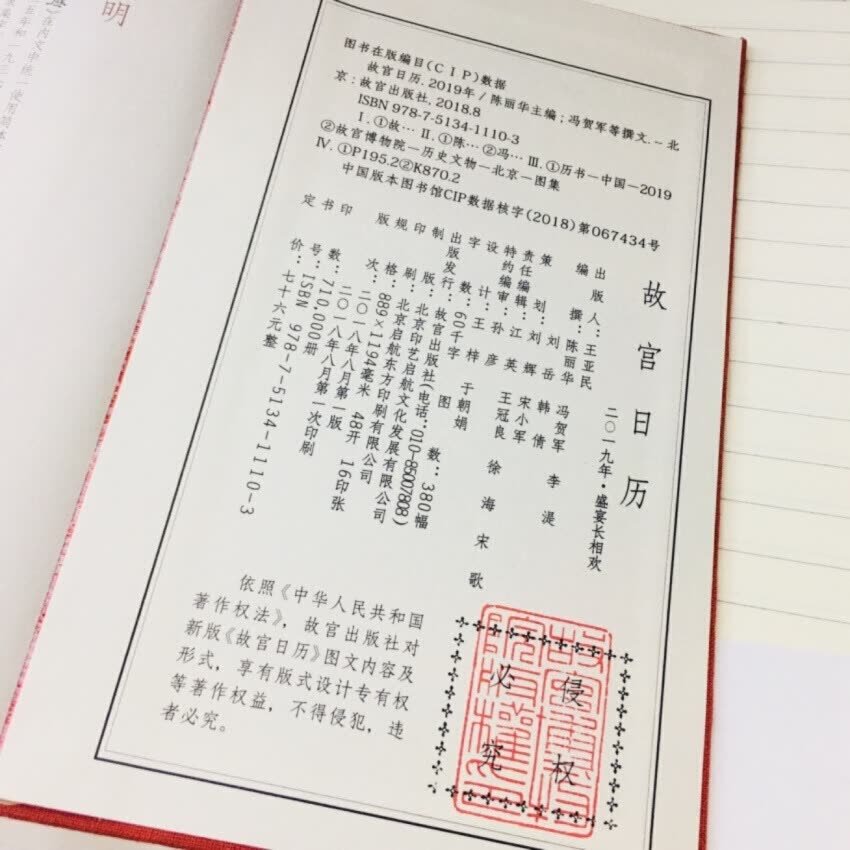 明
在内文中统一使用简体
图书在版编目(CIP)数据
故宫日历.2019年/陈丽华主编;冯贺军等撰文.—北
京:故宫出版社,2018.8
ISBN 978-7-5134-1110-3
Ⅰ.①故… Ⅱ.①陈…②冯… Ⅲ.①历书—中国—2019
②故宫博物院—历史文物—北京—图集
Ⅳ.①P195.2②K870.2
中国版本图书馆CIP数据核字(2018)第067434号
故宫日历
二〇一九年·盛宴长相欢
出版人:王亚民
编撰:陈丽华 冯贺军 李湜
策划:刘岳 韩倩
责任编辑:刘辉 宋小军
江英 王冠良 徐海 宋歌
特约编审:孙彦
设计:王梓 于朝娟
字数:60千字 图数:380幅
出版发行:故宫出版社(电话:010-85007808)
制版:北京印艺启航文化发展有限公司
印刷:北京启航东方印刷有限公司
规格:889×1194毫米 48开 16印张
版次:二〇一八年八月第一版
二〇一八年八月第一次印刷
印数:710,000册
书号:ISBN 978-7-5134-1110-3
定价:七十六元整
依照《中华人民共和国
著作权法》,故宫出版社对
新版《故宫日历》图文内容及
形式,享有版式设计专有权
等著作权益,不得侵犯,违
者必究。
侵权
必究